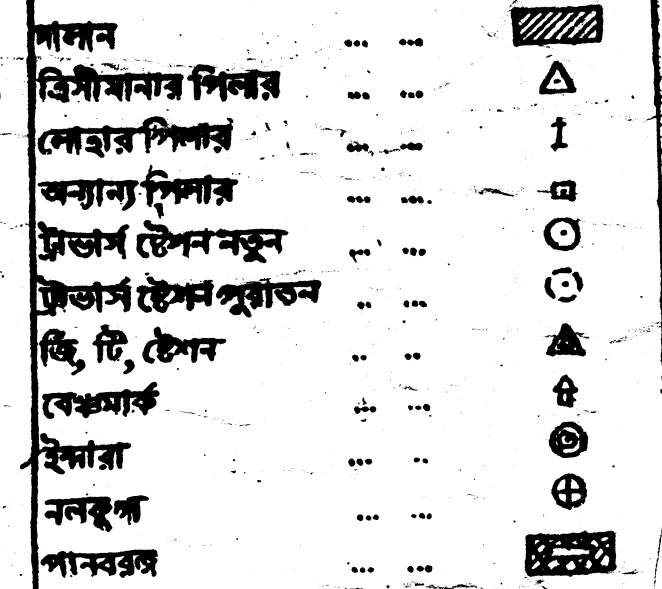 দালান ... ...
ত্রিসীমানার পিলার ... ...
লোহার পিলার ... ...
অন্যান্য পিলার ... ...
ট্রাভার্স ষ্টেশন নতুন ... ...
ট্রাভার্স ষ্টেশন পুরাতন .. ...
জি, টি, ষ্টেশন .. ..
বেঞ্চমার্ক ... ...
ইন্দারা ... ..
নলকুপ ... ...
পানবরজ ... ...